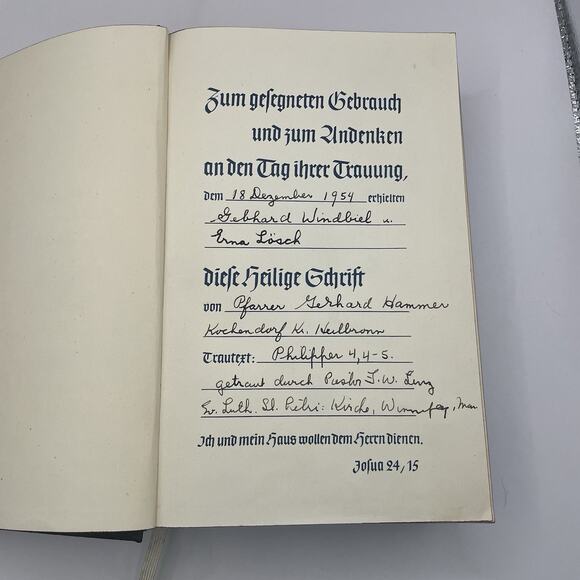 Zum gesegneten Gebrauch
und zum Andenken
an den Tag ihrer Trauung,
dem 18 Dezember 1954 erhielten
Gebhard Windbiel u.
Erna Lösch
diese Heilige Schrift
von Pfarrer Gerhard Hammer
Kochendorf Kr. Heilbronn
Trautext: Philipper 4, 4-5.
getraut durch Pastor W. Lenz
Ev. Luth. St. Petri: Kirche, Winnipeg, Man
Ich und mein Haus wollen dem Herrn dienen.
Josua 24/15